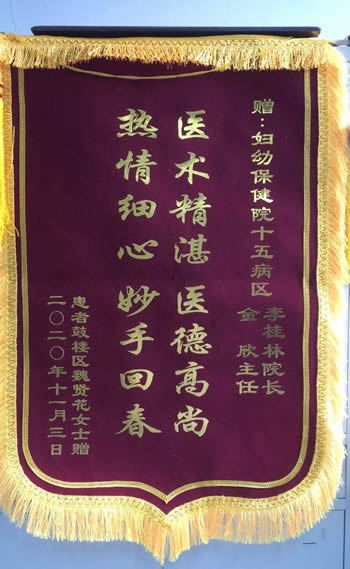 赠：妇幼保健院十五病区
李桂林院长
金欣主任
医术精湛 医德高尚
热情细心 妙手回春
患者鼓楼区魏贤花女士赠
二〇二〇年十一月三日